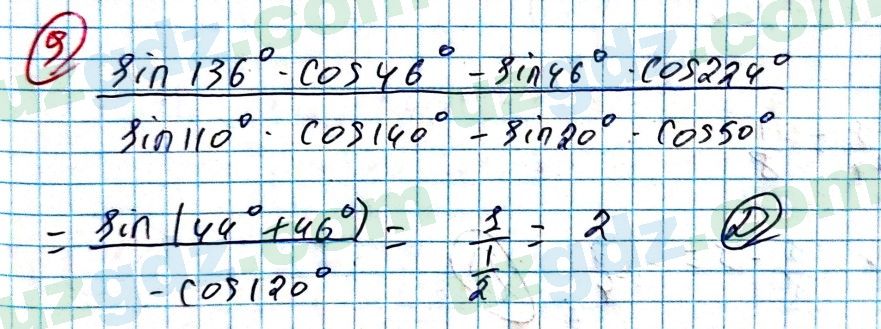 9
sin 136° · cos 46° - sin 46° · cos 224°
sin 110° · cos 140° - sin 20° · cos 50°
= sin (44° + 46°) = 1 = 2 D
- cos 120° 1/2
uzgdz.com